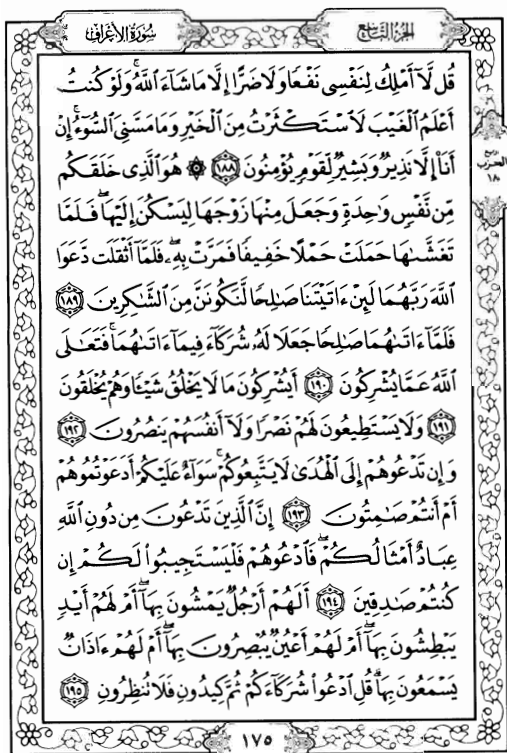 سُورَةُ الأَعْرَافِ
الجُزْءُ التَّاسِعُ
قُل لَّآ أَمْلِكُ لِنَفْسِى نَفْعًا وَلَا ضَرًّا إِلَّا مَا شَآءَ ٱللَّهُ ۚ وَلَوْ كُنتُ
أَعْلَمُ ٱلْغَيْبَ لَٱسْتَكْثَرْتُ مِنَ ٱلْخَيْرِ وَمَا مَسَّنِىَ ٱلسُّوٓءُ ۚ إِنْ
أَنَا۠ إِلَّا نَذِيرٌ وَبَشِيرٌ لِّقَوْمٍ يُؤْمِنُونَ ١٨٨ ۞ هُوَ ٱلَّذِى خَلَقَكُم
مِّن نَّفْسٍ وَٰحِدَةٍ وَجَعَلَ مِنْهَا زَوْجَهَا لِيَسْكُنَ إِلَيْهَا ۖ فَلَمَّا
تَغَشَّىٰهَا حَمَلَتْ حَمْلًا خَفِيفًا فَمَرَّتْ بِهِۦ ۖ فَلَمَّآ أَثْقَلَت دَّعَوَا
ٱللَّهَ رَبَّهُمَا لَئِنْ ءَاتَيْتَنَا صَٰلِحًا لَّنَكُونَنَّ مِنَ ٱلشَّٰكِرِينَ ١٨٩
فَلَمَّآ ءَاتَىٰهُمَا صَٰلِحًا جَعَلَا لَهُۥ شُرَكَآءَ فِيمَآ ءَاتَىٰهُمَا ۚ فَتَعَٰلَى
ٱللَّهُ عَمَّا يُشْرِكُونَ ١٩٠ أَيُشْرِكُونَ مَا لَا يَخْلُقُ شَيْـًٔا وَهُمْ يُخْلَقُونَ
١٩١ وَلَا يَسْتَطِيعُونَ لَهُمْ نَصْرًا وَلَآ أَنفُسَهُمْ يَنصُرُونَ ١٩٢
وَإِن تَدْعُوهُمْ إِلَى ٱلْهُدَىٰ لَا يَتَّبِعُوكُمْ ۚ سَوَآءٌ عَلَيْكُمْ أَدَعَوْتُمُوهُمْ
أَمْ أَنتُمْ صَٰمِتُونَ ١٩٣ إِنَّ ٱلَّذِينَ تَدْعُونَ مِن دُونِ ٱللَّهِ
عِبَادٌ أَمْثَالُكُمْ ۖ فَٱدْعُوهُمْ فَلْيَسْتَجِيبُوا۟ لَكُمْ إِن
كُنتُمْ صَٰدِقِينَ ١٩٤ أَلَهُمْ أَرْجُلٌ يَمْشُونَ بِهَآ ۖ أَمْ لَهُمْ أَيْدٍ
يَبْطِشُونَ بِهَآ ۖ أَمْ لَهُمْ أَعْيُنٌ يُبْصِرُونَ بِهَآ ۖ أَمْ لَهُمْ ءَاذَانٌ
يَسْمَعُونَ بِهَا ۗ قُلِ ٱدْعُوا۟ شُرَكَآءَكُمْ ثُمَّ كِيدُونِ فَلَا تُنظِرُونِ ١٩٥
الحزب
١٨
١٧٥